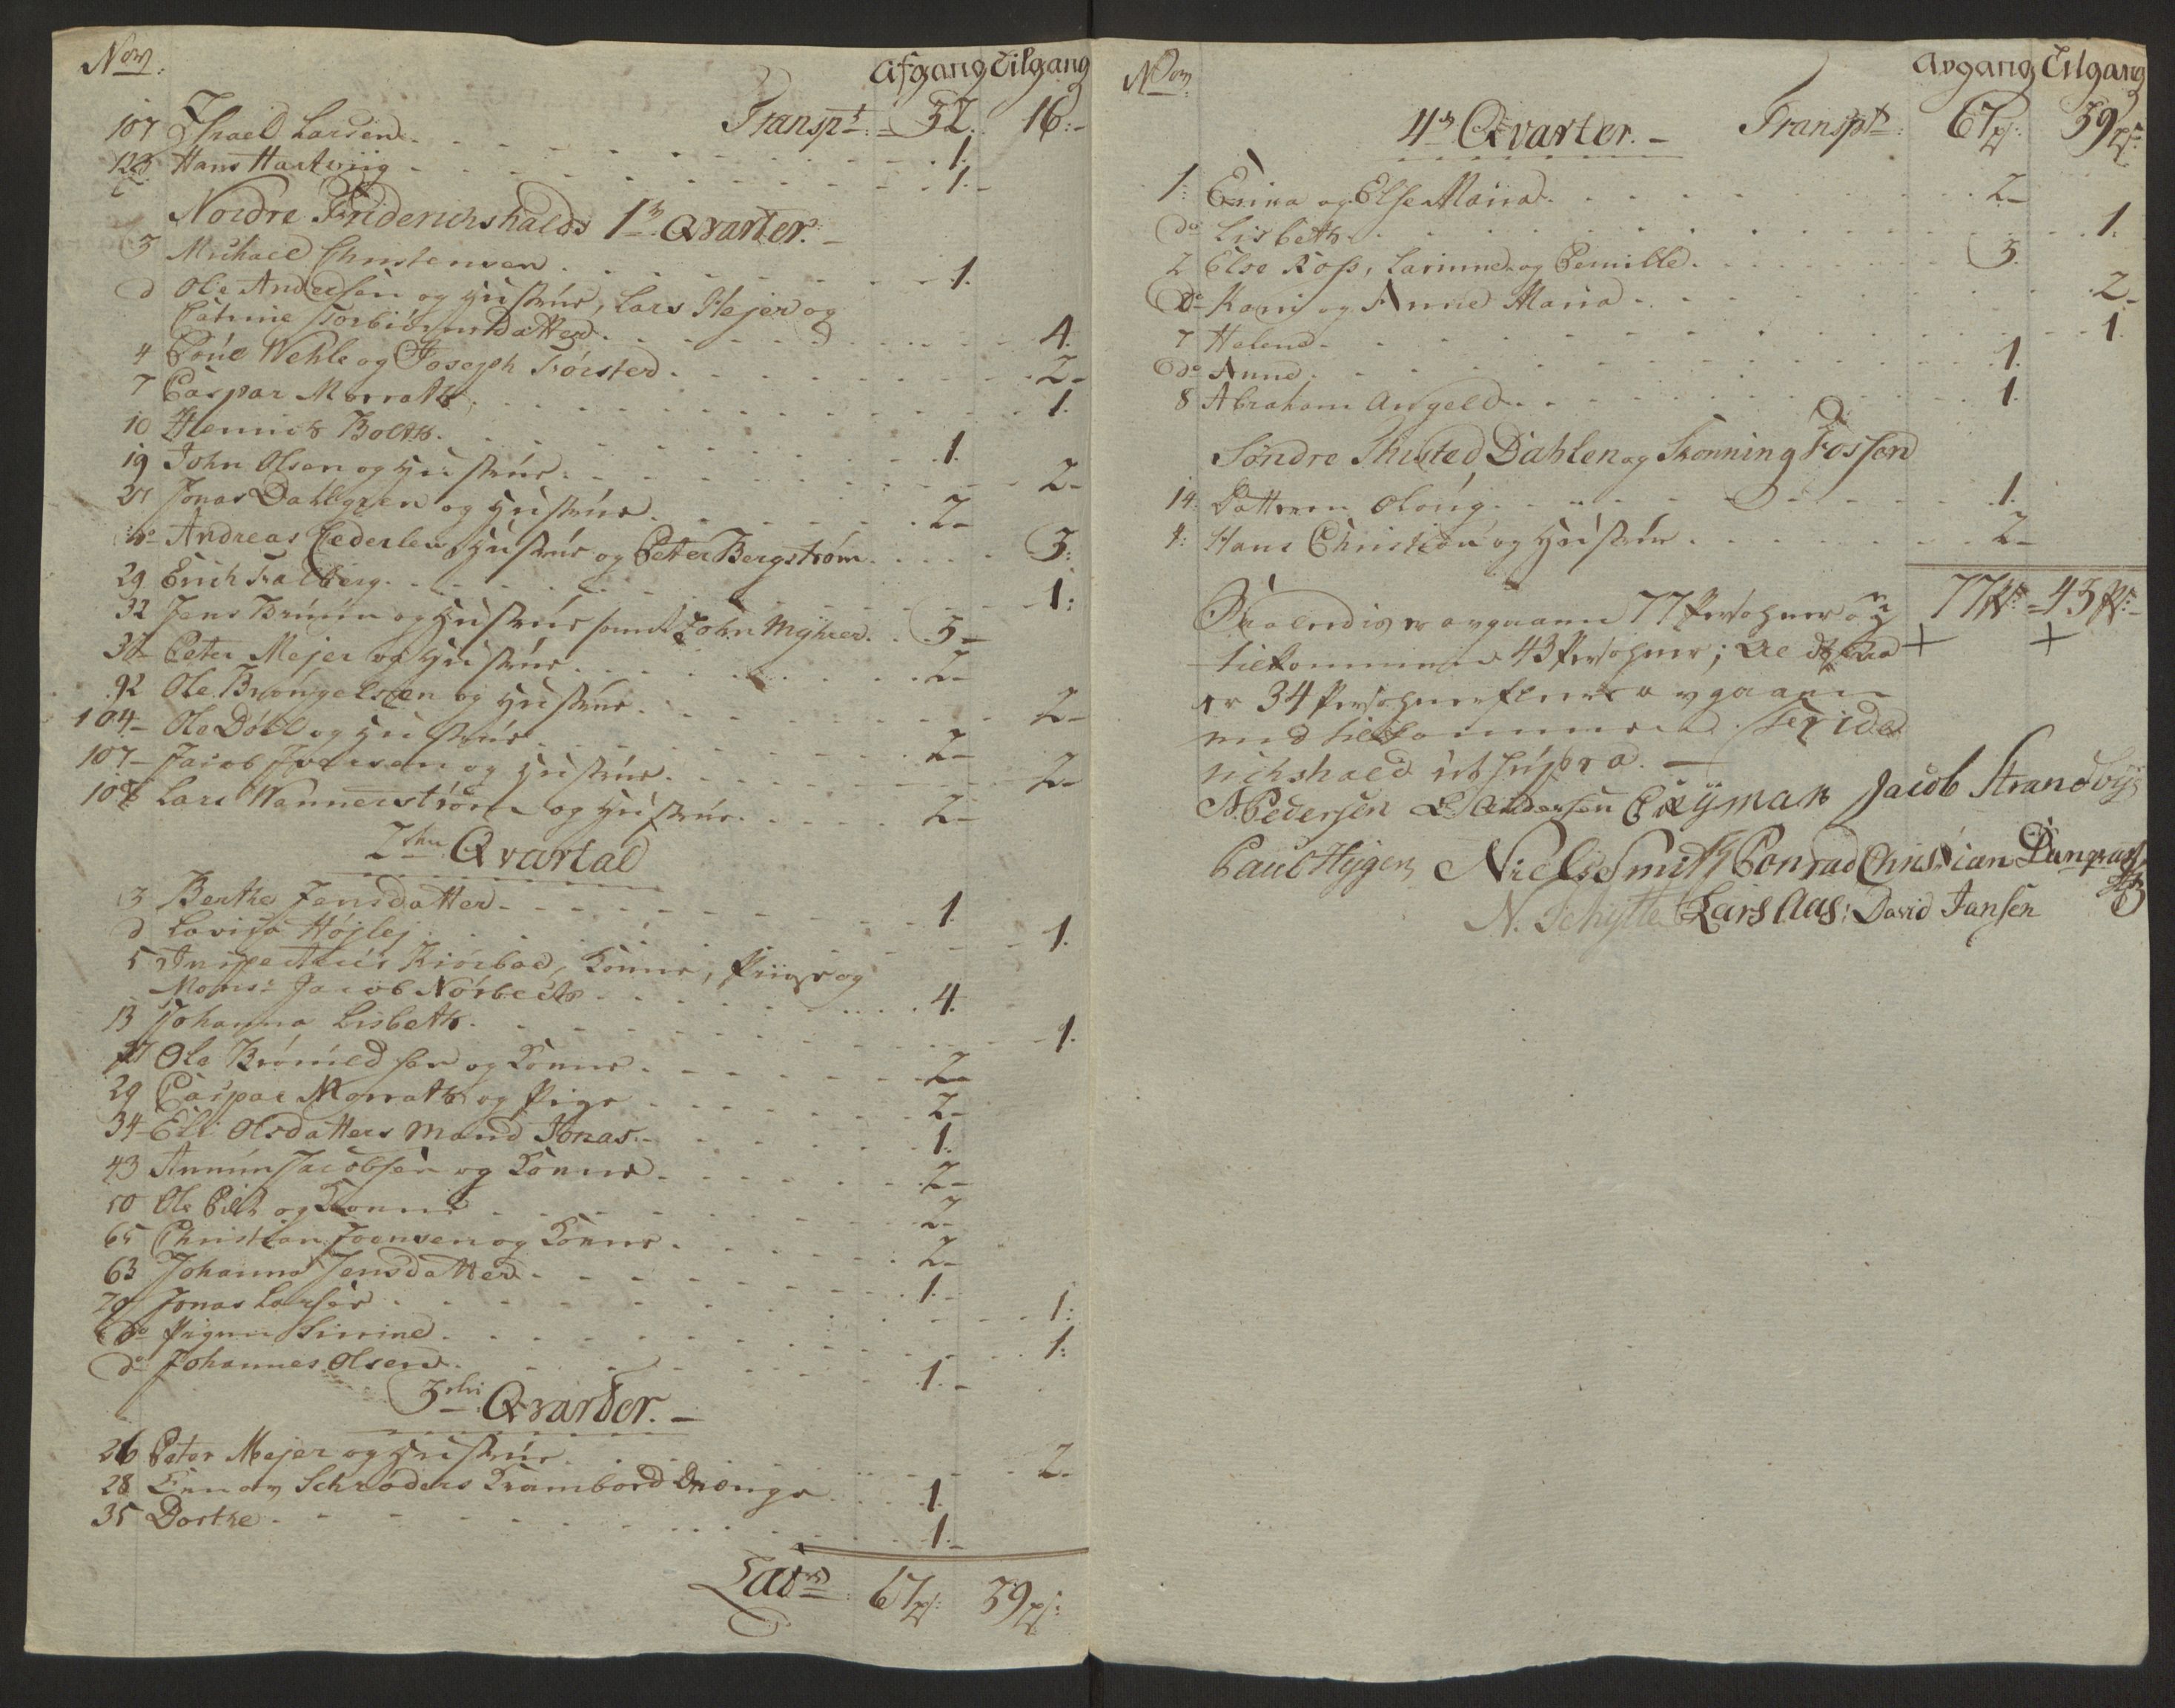 Nom: Afgang Tilgang
Transpt: 32. 16:-
107 Israel Larsen 1.
128 Hans Hartvig 1.-
Nordre Friderichshalds 1ste Qvarter.-
3 Michael Christensen 1.
d Ole Andersen og Hustrue, Lars Hejer og
Catrine Torbiørnsdatter 4.
4 Poul Wehle og Joseph Troisted 2-
7 Caspar Morrath 1.
10 Hennich Bolth 1.
19 John Olsen og Hustrue 2-
21 Jonas Dahlgren og Hustrue 2-
do Andreas Cederlen, Hustrue og Peter Bergstrøm 3:
29 Erich Falberg 1:
32 Jens Bruun og Hustrue samt John Myhre 3-
38 Peter Mejer og Hustrue 2-
92 Ole Brøngelsen og Hustrue 2-
104- Ole Døll og Hustrue 2-
107- Jacob Iversen og Hustrue 2-
108 Lars Wannerstrøm og Hustrue 2-
2den Qvartal
3 Berthe Jensdatter 1
d Lovisa Højlej 1.
5 Inspecteur Kiørboe, Konne, Piige og
Monsr Jacob Nørbech 4.
13 Johanna Lisbeth 1.
27 Ole Brønildsen og Konne 2-
29 Caspar Morrath og Pige 2-
34- Eli Olsdatters Mand Jonas 1.
43 Ammun Jacobsen og Konne 2-
50 Ole Pilt og Konne 2-
65 Christian Joensen og Konne 2-
63 Johanna Jensdatter 1.-
79 Jonas Larsen 1:
do Pigen Sirrine 1:
do Johannes Olsen 1.-
3die Qvarter.-
26 Peter Mejer og Hustrue 2-
28 Een av Schrøders Krambord Drenge 1.
35 Dorthe 1.-
Latus 67ps: 39ps:
Nom: Avgang Tilgang
4de Qvarter.- Transpt: 67ps: 39ps:
1: Erina og Else Maria 2-
do Lisbeth 1.
2 Else Ross, Larinne og Pernille 3.
do Karri og Anne Maria 2-
7 Helene 1.
do Anne 1.
8 Abraham Angeld 1.
Søndre Thisted Dahlen og Skonning Fossen
14: Datteren Olaug 1.
4: Hans Christian og Hustrue 2-
77ps: 43ps:
Saaledis er avgaaen 77 Persohner og
tilkommen 43 Persohner;
er 34 Persohner fleere avgaaen
end tilkommen. Fride
richshald ut supra.-
N. Pedersen L. Andersen Jacob Strandbÿe
Paul Hÿgen Niels Smith Conrad Christian
N. Schÿtte Lars Aas: David Jansen